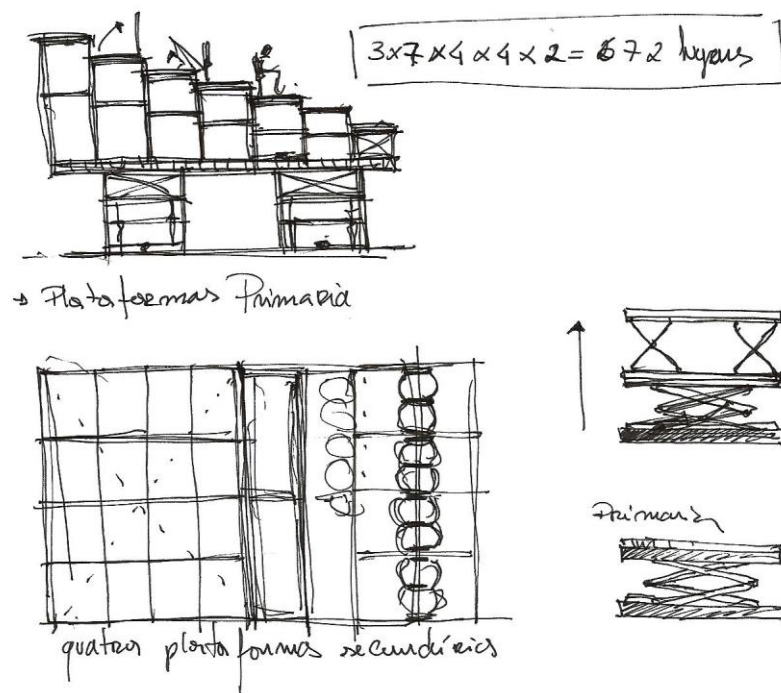 3x7x4x4x2 = 672 lugares
→ Plataformas Primaria
Primaria
quatro plataformas secundárias